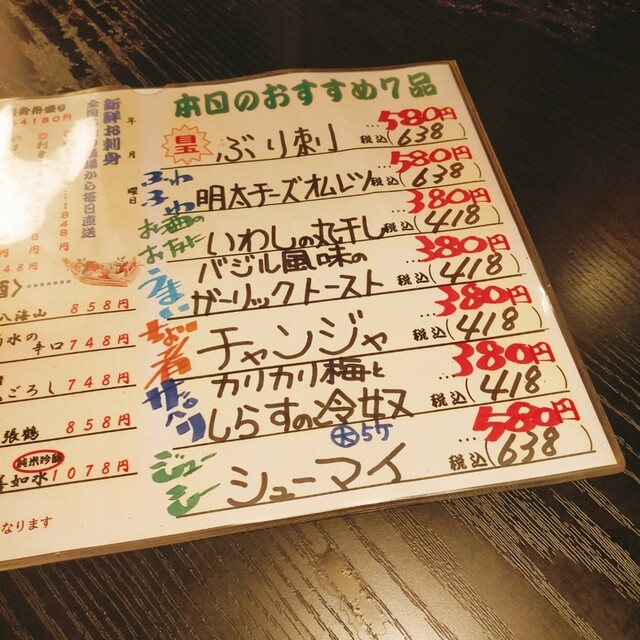 本日のおすすめ7品
ぶり刺 …580円 税込(638)
ふわふわ 明太チーズオムレツ …580円 税込(638)
お酒のおともに いわしの丸干し …380円 税込(418)
うまい バジル風味の
ガーリックトースト …380円 税込(418)
チャンジャ …380円 税込(418)
カリカリ梅と
しらすの冷奴 …380円 税込(418)
ジューシー シューマイ 大5ケ …580円 税込(638)
新鮮お刺身
から毎日直送
年 月 曜日
4180円
1848円
八海山 858円
辛口 748円
ごろし 748円
張鶴 858円
純米吟醸
如水 1078円
なります